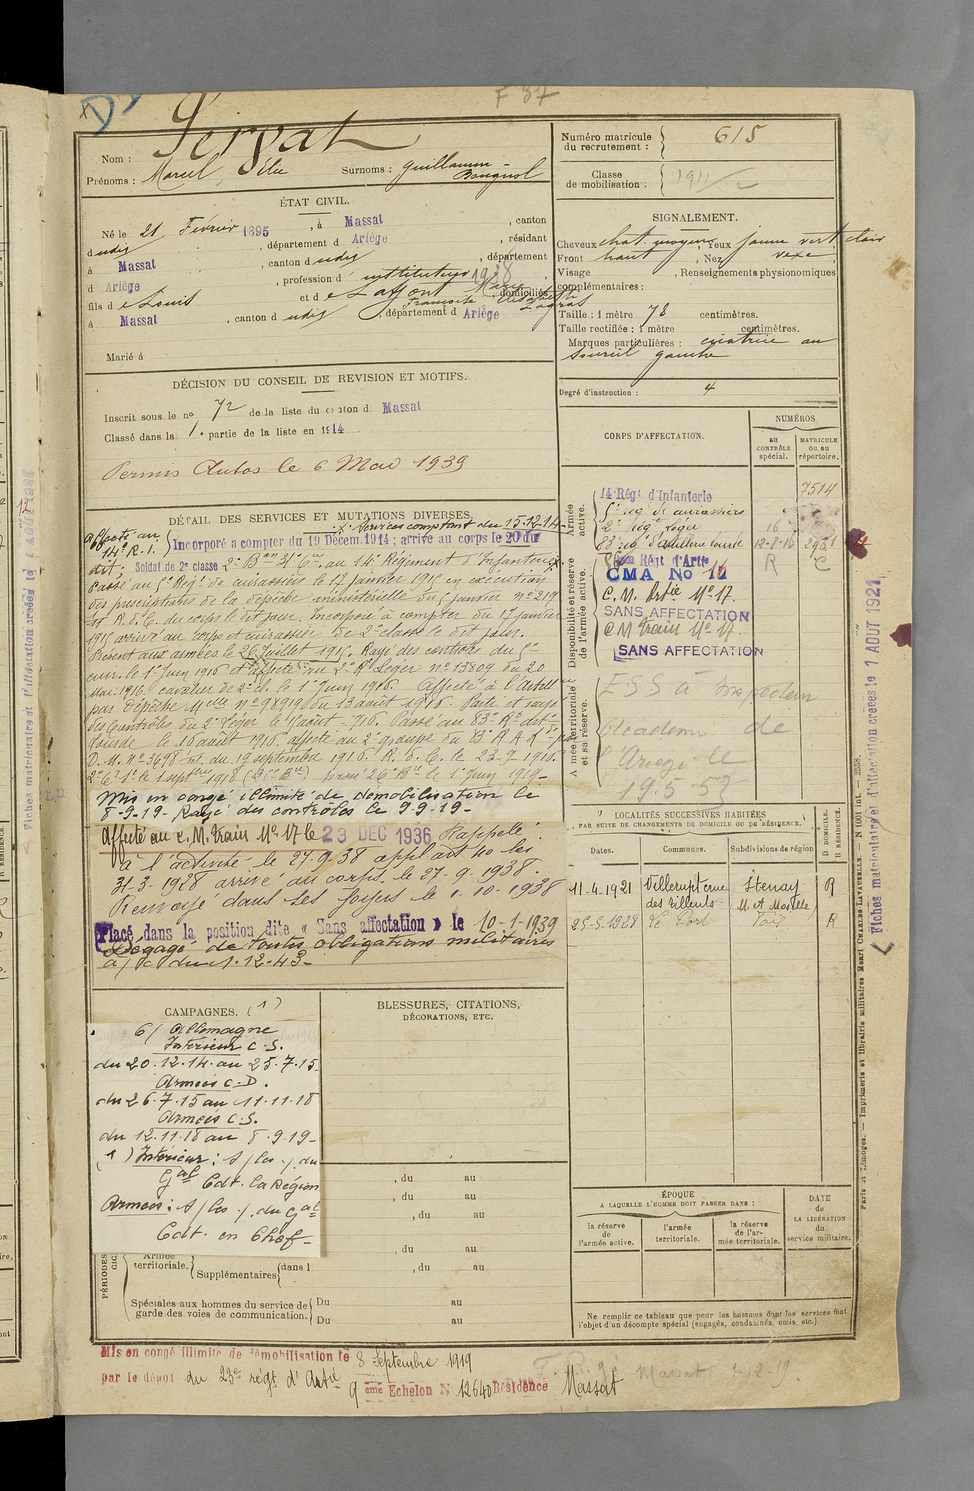 F 37
Servat
Nom :
Prénoms : Marcel, Elie Surnoms : Guillaumn -
Bougnol
Numéro matricule
du recrutement : 615
Classe
de mobilisation : 1911/2
ÉTAT CIVIL.
Né le 21 Février 1895, à Massat, canton
dudit, département d Ariège, résidant
à Massat, canton dudit, département
d Ariège, profession d'instituteur 1928
fils de Louis et de Laffont Marie domiciliés
Françoise Elisabeth
à Massat, canton dudit, département d Ariège
Marié à
SIGNALEMENT.
Cheveux chat. moyens Yeux jaune vert clair
Front haut, Nez vexe,
Visage, Renseignements physionomiques
complémentaires :
Taille : 1 mètre 78 centimètres.
Taille rectifiée : 1 mètre centimètres.
Marques particulières : cicatrice au
sourcil gauche
Degré d'instruction : 4
DÉCISION DU CONSEIL DE REVISION ET MOTIFS.
Inscrit sous le no 72 de la liste du canton d Massat
Classé dans la 1e partie de la liste en 1914.
Permis Autos le 6 Mai 1939
DÉTAIL DES SERVICES ET MUTATIONS DIVERSES.
x Services comptant du 15.12.14
Affecté au
14e R. I. Incorporé a compter du 19 Décem. 1914 ; arrivé au corps le 20 du
dit ; Soldat de 2e classe 2e Bon 31e Cie au 14e Régiment d'Infanterie x
Passé au 5e Rég. de cuirassiers le 17 janvier 1915 en exécution
des prescriptions de la dépêche ministérielle du 5 janvier no 219
R. d. C. du corps le dit jour. Incorporé à compter du 17 janvier
1915 arrivé au corps et cuirassier de 2e classe le dit jour.
Présent aux armées le 26 juillet 1915. Rayé des contrôles du 5e
cuir. le 1er juin 1916 et affecté au 2e Rt Léger no 13809 du 20
mai 1916 cavalier de 2e cl. le 1er juin 1916. Affecté à l'Artill
par dépêche Mlle no 98919 du 13 août 1916. Parti et rayé
des contrôles du 2e Léger le 9 août 1916. Passé au 83e Rt d'art
lourde le 10 août 1916. affecté au 2e groupe du 83e R A L
D. M. no 3698 du 19 septembre 1916. R. d. C. le 23-9-1916.
le 1 septbre 1918 passé 26e Bie le 1er juin 1919-
Mis en congé illimité de démobilisation le
8-9-19- Rayé des contrôles le 9-9-19-
Affecté au C. M. train No 17 le 23 DEC 1936 Rappelé
à l'activité le 27-9-38 appl art 40 loi
31-3-1928 arrivé au corps le 27-9-1938.
Renvoyé dans ses foyers le 1-10-1938
Placé dans la position dite « Sans affectation » le 10-1-1939
Dégagé de toutes obligations militaires
à/c du 1-12-43-
CORPS D'AFFECTATION.
NUMÉROS
au
CONTRÔLE
spécial.
MATRICULE
ou au
répertoire.
Armée
active.
14 Régt d'Infanterie 7514
5e rég de cuirassiers
2e régt Léger 16
83 rég d'Artillerie lourde
Disponibilité et réserve
de l'armée active.
Régt d'Artie R C
CMA No 12
C. M. Artie No 17.
SANS AFFECTATION
C M train No 17.
SANS AFFECTATION
Armée territoriale
et sa réserve.
E S S à Inspection
Académi de
l'Ariège le
19.5.52
LOCALITÉS SUCCESSIVES HABITÉES
PAR SUITE DE CHANGEMENTS DE DOMICILE OU DE RÉSIDENCE.
Dates. Communes. Subdivisions de région D DOMICILE. R RÉSIDENCE.
11-4-1921 Villerupt crue Stenay R
des Tilleuls M. et Moselle
25-5-1928 Le Port Foix R
CAMPAGNES. (1)
C/ Allemagne
Intérieur C.S.
du 20.12.14 au 25.7.15
Armées C.D.
du 26.7.15 au 11.11.18
Armées C.S.
du 12.11.18 au 8.9.19-
(1) Intérieur : s/les o/. du
Gal Cdt. la Région
Armées : s/les o/. du Gal
Cdt. en Chef-
BLESSURES, CITATIONS,
DÉCORATIONS, ETC.
, du au
, du au
, du au
, du au
PÉRIODES
Armée
territoriale. Supplémentaires dans l , du au
Spéciales aux hommes du service de
garde des voies de communication. Du au
Du au
ÉPOQUE
A LAQUELLE L'HOMME DOIT PASSER DANS :
la réserve
de l'armée active.
l'armée
territoriale.
la réserve
de l'ar-
mée territoriale.
DATE
de
LA LIBÉRATION
du
service militaire.
Ne remplir ce tableau que pour les hommes dont les services font
l'objet d'un décompte spécial (engagés, condamnés, omis, etc.).
Mis en congé illimité de démobilisation le 8 Septembre 1919
par le dépôt du 23e régt d'Artie
9 ème Echelon N 12640 Résidence Massat
Paris et Limoges. — Imprimerie et librairie militaires Henri CHARLES-LAVAUZELLE. — N 1001 int. — 2558.
Fiches matriculaire et d'affectation créées le 1 AOUT 1927